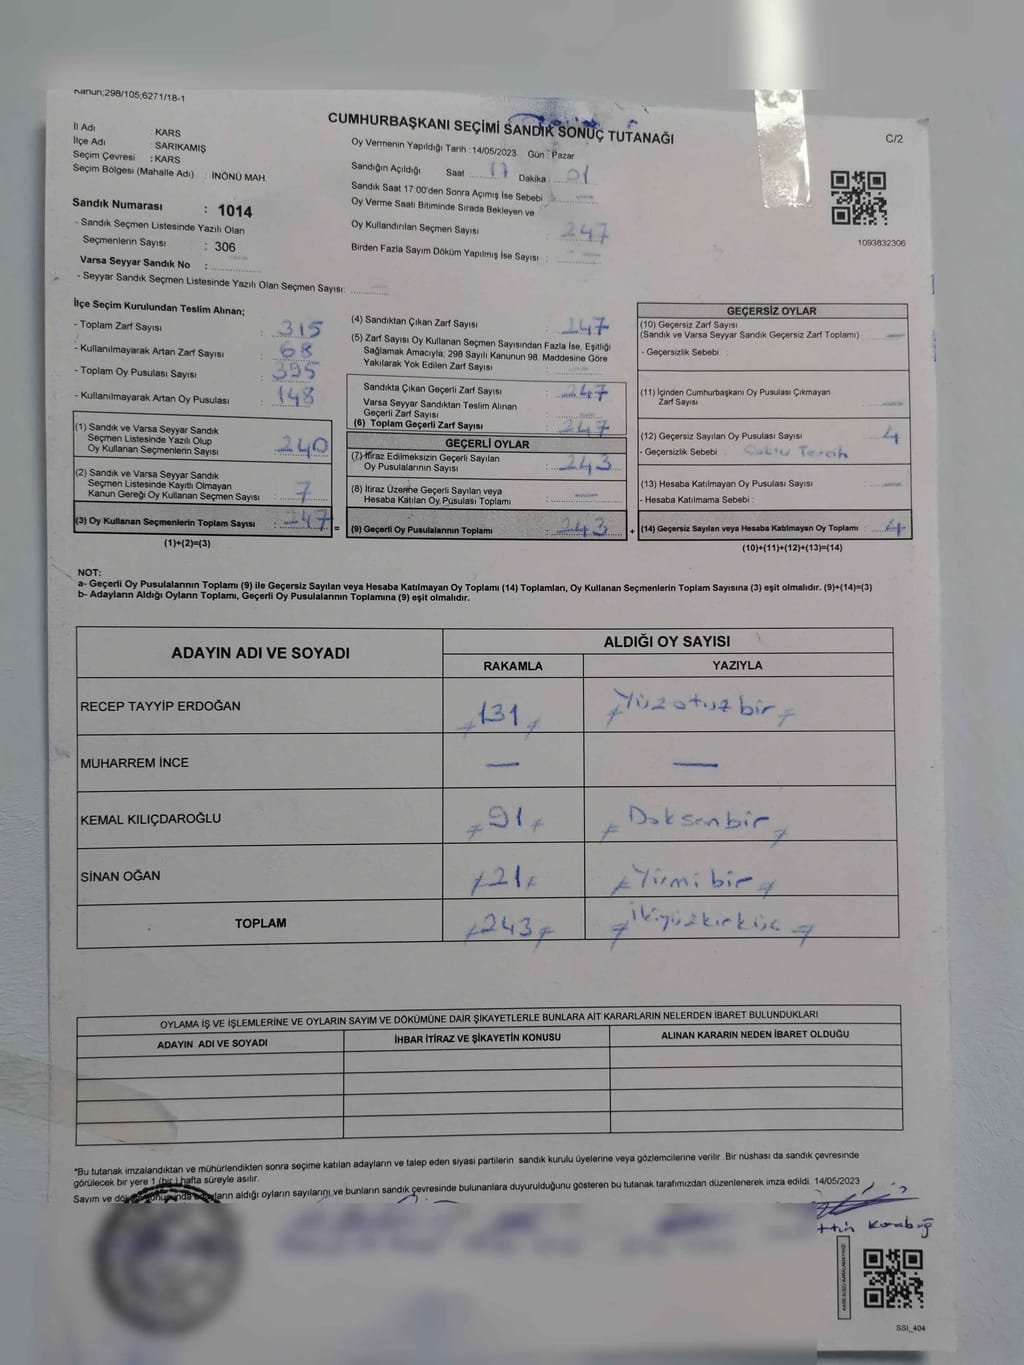 Kanun;298/105;6271/18-1
CUMHURBAŞKANI SEÇİMİ SANDIK SONUÇ TUTANAĞI
C/2
İl Adı : KARS
İlçe Adı : SARIKAMIŞ
Seçim Çevresi : KARS
Seçim Bölgesi (Mahalle Adı) : İNÖNÜ MAH.
Sandık Numarası : 1014
- Sandık Seçmen Listesinde Yazılı Olan
Seçmenlerin Sayısı : 306
Varsa Seyyar Sandık No :
- Seyyar Sandık Seçmen Listesinde Yazılı Olan Seçmen Sayısı:
Oy Vermenin Yapıldığı Tarih : 14/05/2023 Gün : Pazar
Sandığın Açıldığı Saat 17 Dakika : 01
Sandık Saat 17:00'den Sonra Açımış İse Sebebi
Oy Verme Saati Bitiminde Sırada Bekleyen ve
Oy Kullandırılan Seçmen Sayısı : 247
Birden Fazla Sayım Döküm Yapılmış İse Sayısı :
1093832306
İlçe Seçim Kurulundan Teslim Alınan;
- Toplam Zarf Sayısı : 315
- Kullanılmayarak Artan Zarf Sayısı : 68
- Toplam Oy Pusulası Sayısı : 395
- Kullanılmayarak Artan Oy Pusulası : 148
(1) Sandık ve Varsa Seyyar Sandık
Seçmen Listesinde Yazılı Olup
Oy Kullanan Seçmenlerin Sayısı : 240
(2) Sandık ve Varsa Seyyar Sandık
Seçmen Listesinde Kayıtlı Olmayan
Kanun Gereği Oy Kullanan Seçmen Sayısı : 7
(3) Oy Kullanan Seçmenlerin Toplam Sayısı : 247 =
(1)+(2)=(3)
(4) Sandıktan Çıkan Zarf Sayısı : 247
(5) Zarf Sayısı Oy Kullanan Seçmen Sayısından Fazla İse, Eşitliği
Sağlamak Amacıyla; 298 Sayılı Kanunun 98. Maddesine Göre
Yakılarak Yok Edilen Zarf Sayısı : —
Sandıkta Çıkan Geçerli Zarf Sayısı : 247
Varsa Seyyar Sandıktan Teslim Alınan
Geçerli Zarf Sayısı : —
(6) Toplam Geçerli Zarf Sayısı : 247
GEÇERLİ OYLAR
(7) İtiraz Edilmeksizin Geçerli Sayılan
Oy Pusulalarının Sayısı : 243
(8) İtiraz Üzerine Geçerli Sayılan veya
Hesaba Katılan Oy Pusulası Toplamı : —
(9) Geçerli Oy Pusulalarının Toplamı : 243 +
GEÇERSİZ OYLAR
(10) Geçersiz Zarf Sayısı
(Sandık ve Varsa Seyyar Sandık Geçersiz Zarf Toplamı) : —
- Geçersizlik Sebebi :
(11) İçinden Cumhurbaşkanı Oy Pusulası Çıkmayan
Zarf Sayısı : —
(12) Geçersiz Sayılan Oy Pusulası Sayısı : 4
- Geçersizlik Sebebi : Çoklu Tercih
(13) Hesaba Katılmayan Oy Pusulası Sayısı : —
- Hesaba Katılmama Sebebi :
(14) Geçersiz Sayılan veya Hesaba Katılmayan Oy Toplamı : 4
(10)+(11)+(12)+(13)=(14)
NOT:
a- Geçerli Oy Pusulalarının Toplamı (9) ile Geçersiz Sayılan veya Hesaba Katılmayan Oy Toplamı (14) Toplamları, Oy Kullanan Seçmenlerin Toplam Sayısına (3) eşit olmalıdır. (9)+(14)=(3)
b- Adayların Aldığı Oyların Toplamı, Geçerli Oy Pusulalarının Toplamına (9) eşit olmalıdır.
ADAYIN ADI VE SOYADI
ALDIĞI OY SAYISI
RAKAMLA YAZIYLA
RECEP TAYYİP ERDOĞAN 131 Yüzotuzbir
MUHARREM İNCE — —
KEMAL KILIÇDAROĞLU 91 Doksanbir
SİNAN OĞAN 21 Yirmibir
TOPLAM 243 İkiyüzkırküç
OYLAMA İŞ VE İŞLEMLERİNE VE OYLARIN SAYIM VE DÖKÜMÜNE DAİR ŞİKAYETLERLE BUNLARA AİT KARARLARIN NELERDEN İBARET BULUNDUKLARI
ADAYIN ADI VE SOYADI İHBAR İTİRAZ VE ŞİKAYETİN KONUSU ALINAN KARARIN NEDEN İBARET OLDUĞU
*Bu tutanak imzalandıktan ve mühürlendikten sonra seçime katılan adayların ve talep eden siyasi partilerin sandık kurulu üyelerine veya gözlemcilerine verilir. Bir nüshası da sandık çevresinde
görülecek bir yere 1 (bir) hafta süreyle asılır.
Sayım ve adayların aldığı oyların sayılarını ve bunların sandık çevresinde bulunanlara duyurulduğunu gösteren bu tutanak tarafımızdan düzenlenerek imza edildi. 14/05/2023
SSI_404